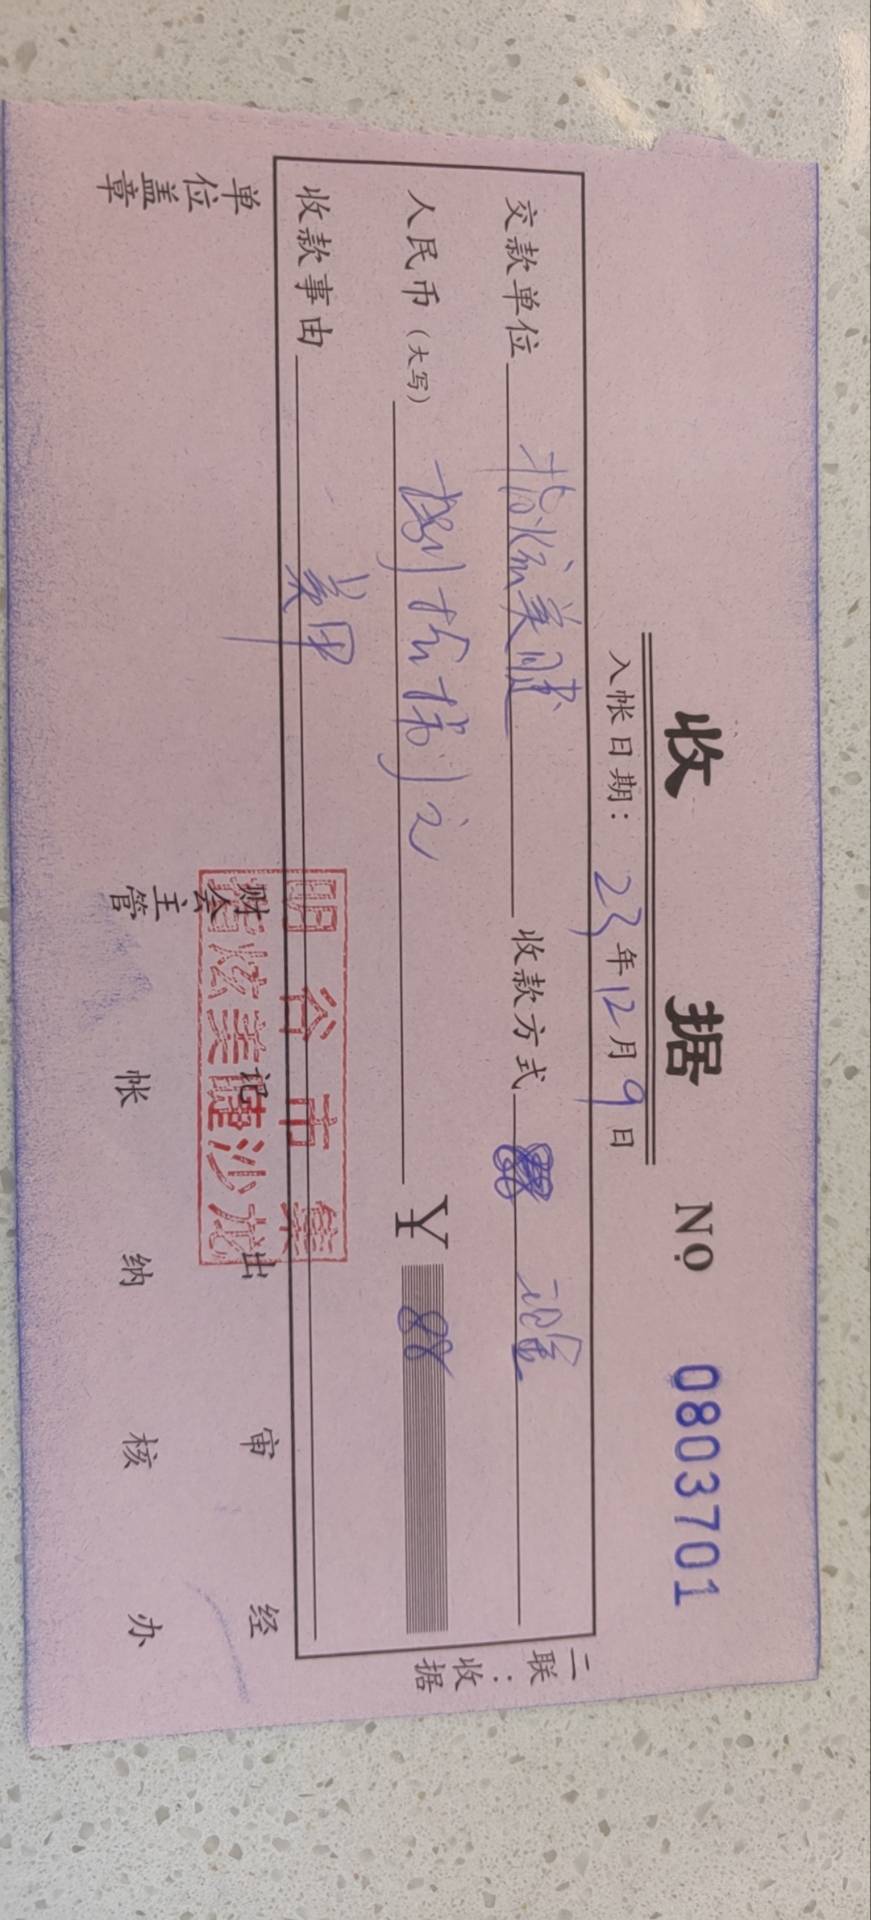 收 据 № 0803701
入帐日期: 23年12月9日
交款单位 指炫美睫 收款方式 现金
人民币(大写) 捌拾捌元 ¥ 88
收款事由 美甲
二联:收据
明谷市集
指炫美睫沙龙
单位盖章 财会主管 记帐 出纳 审核 经办